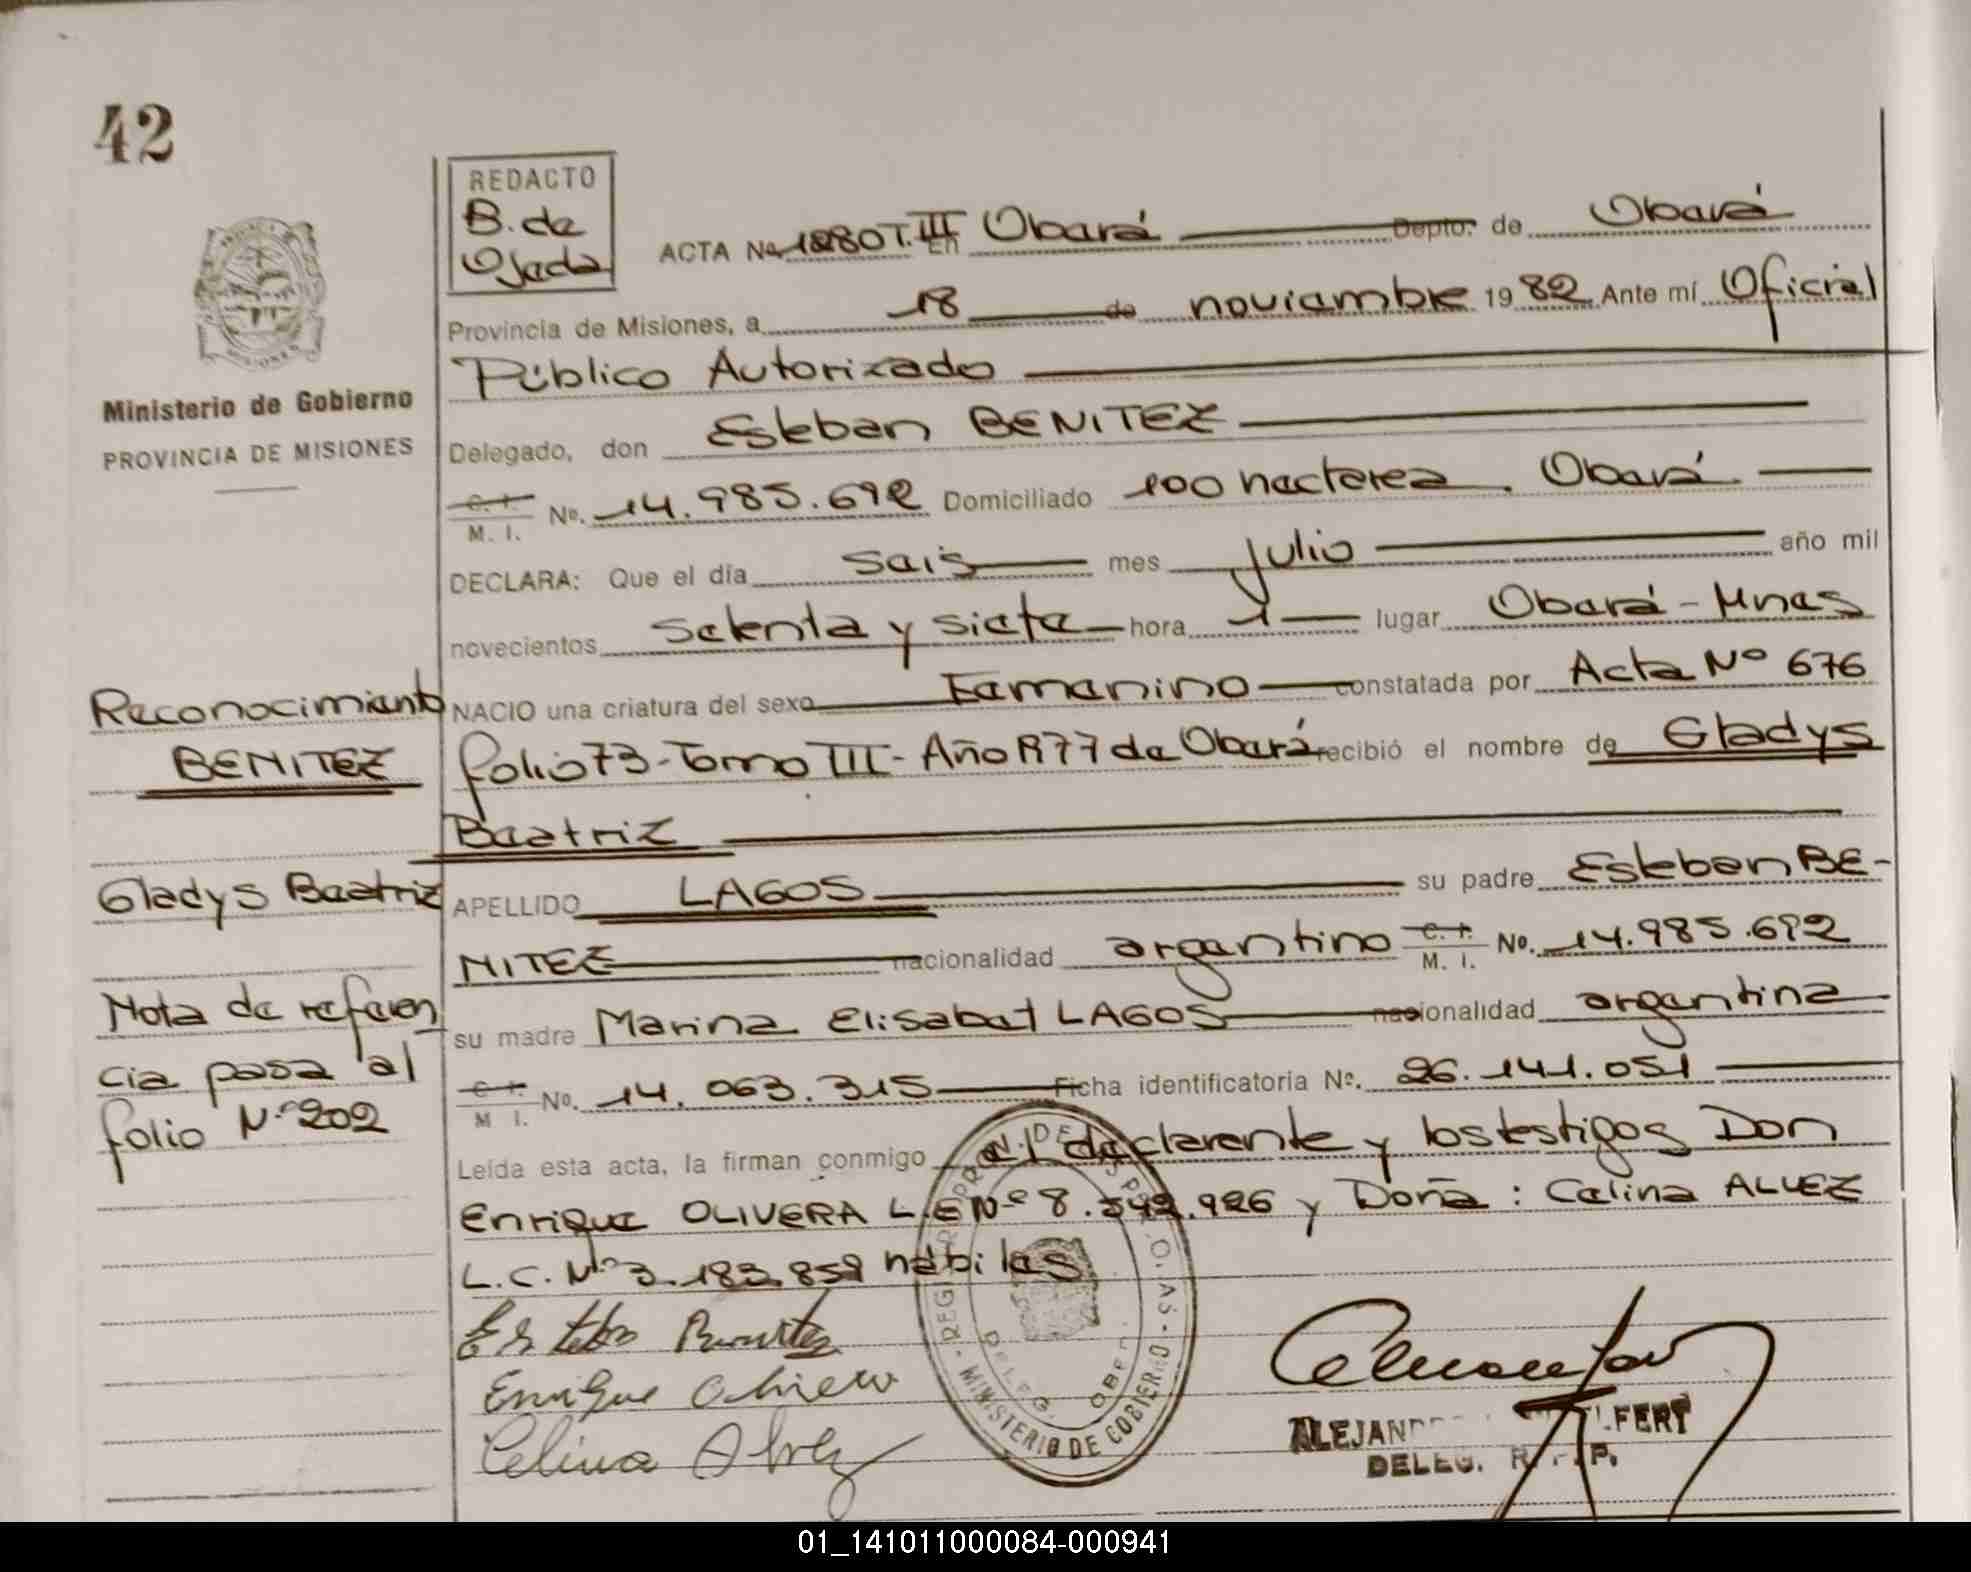 42
REDACTO
B. de
Ojeda
ACTA No 1280 T. III En Oberá Depto. de Oberá
Provincia de Misiones, a 18 de noviembre 1982 Ante mí Oficial
Público Autorizado
Ministerio de Gobierno
PROVINCIA DE MISIONES
Delegado, don Esteban BENITEZ
C. I. M. I. No. 14.985.692 Domiciliado 100 hectarea. Oberá
DECLARA: Que el día seis mes julio año mil
novecientos setenta y siete hora 1 lugar Oberá - Mnes
Reconocimiento
NACIO una criatura del sexo Femenino constatada por Acta Nº 676
BENITEZ
folio 73 - Tomo III - Año 1977 de Oberá recibió el nombre de Gladys
Beatriz
Gladys Beatriz
APELLIDO LAGOS su padre Esteban BE-
NITEZ nacionalidad argentino C. I. M. I. No. 14.985.692
Nota de referen
cia pasa al
folio Nº 202
su madre Marina Elisabet LAGOS nacionalidad argentina
C. I. M. I. No. 14.063.315 Ficha identificatoria No. 26.141.051
Leída esta acta, la firman conmigo el declarente y los testigos Don
Enrique OLIVERA L.E Nº 8.542.926 y Doña: Celina ALVEZ
L.C. Nº 3.183.859 habiles
Esteban Benitez
Enrique Olivera
Celina Alvez
MINISTERIO DE GOBIERNO
DELEG. OBERÁ
DELEG. R. P.
01_141011000084-000941